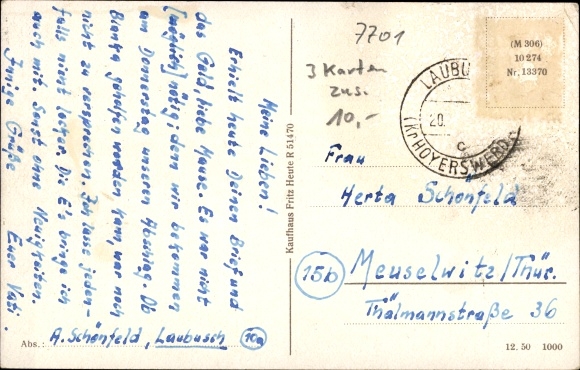 Meine Lieben!
Erhielt heute Deinen Brief und
das Geld, liebe Mause. Es war nicht
[möglich] nötig; denn wir bekommen
am Donnerstag unseren Abschlag. Ob
Bianka geholfen werden kann, war noch
nicht zu versprechen. Ich lasse jeden-
falls nicht locker. Die E's bringe ich
auch mit. Sonst ohne Neuigkeiten.
Innige Grüße Euer Vati.
Abs.: A. Schönfeld, Laubusch 10a
Kaufhaus Fritz Heute R 51470
7701
3 Karten
zus.
10,-
LAUBU
20.
c
(Kr HOYERSWERD
(M 396)
10 274
Nr. 13370
Frau
Herta Schönfeld
15b Meuselwitz/Thür.
Thälmannstraße 36
12. 50 1000